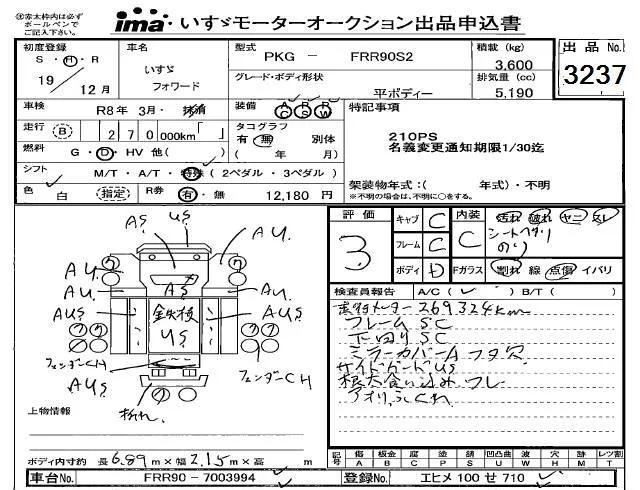 ㊟赤太枠内は必ず
ボールペンで
ご記入下さい。
ima いすゞモーターオークション出品申込書
初度登録 車名 型式 PKG － FRR90S2 積載 (kg) 3,600 出品 No.
S・H・R いすゞ グレード・ボディ形状 排気量 (cc) 3237
19 12月 フォワード 平ボディー 5,190
車検 R8年 3月・抹消 装備 A/C P/S R/W 特記事項
走行 (B) 270000km「 」 タコグラフ 有・無 別体 210PS
燃料 G・D・HV 他( ) ( 年 月) 名義変更通知期限1/30迄
シフト M/T・A/T・特殊 (2ペダル・3ペダル)
色 白 (指定) R券 有・無 12,180円 架装物年式:( 年式)・不明
※不明の場合は、不明に○をする。
評価 3 キャブ C 内装 C 汚れ 破れ ヤニ スレ
フレーム C シートヘタリ
のり
ボディ D Fガラス 割れ 線 点傷 イバリ
検査員報告 A/C( ) B/T( )
メーター269324km
フレームSC
下回りSC
ミラーカバーAフタ欠
サイドガードUS
根太食い込み
アオリふくれ
AS US
AU. AU.
AU. AS AU.
AUS 鉄板 AUS
US
フェンダーCH フェンダーCH
AUS
折れ
上物情報
ボディ内寸約 長6.89m×幅2.15m×高 m
記号 傷 A 板金 B 腐 C 塗 P 錆 S 凹凸凸凹 U 波 W 穴 H 跡 M レツ割 T
車台No. FRR90－7003994 登録No. エヒメ 100 せ 710